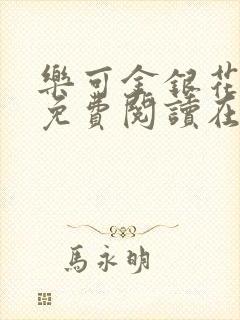 樂可金銀花
免費閱讀在
馬永明